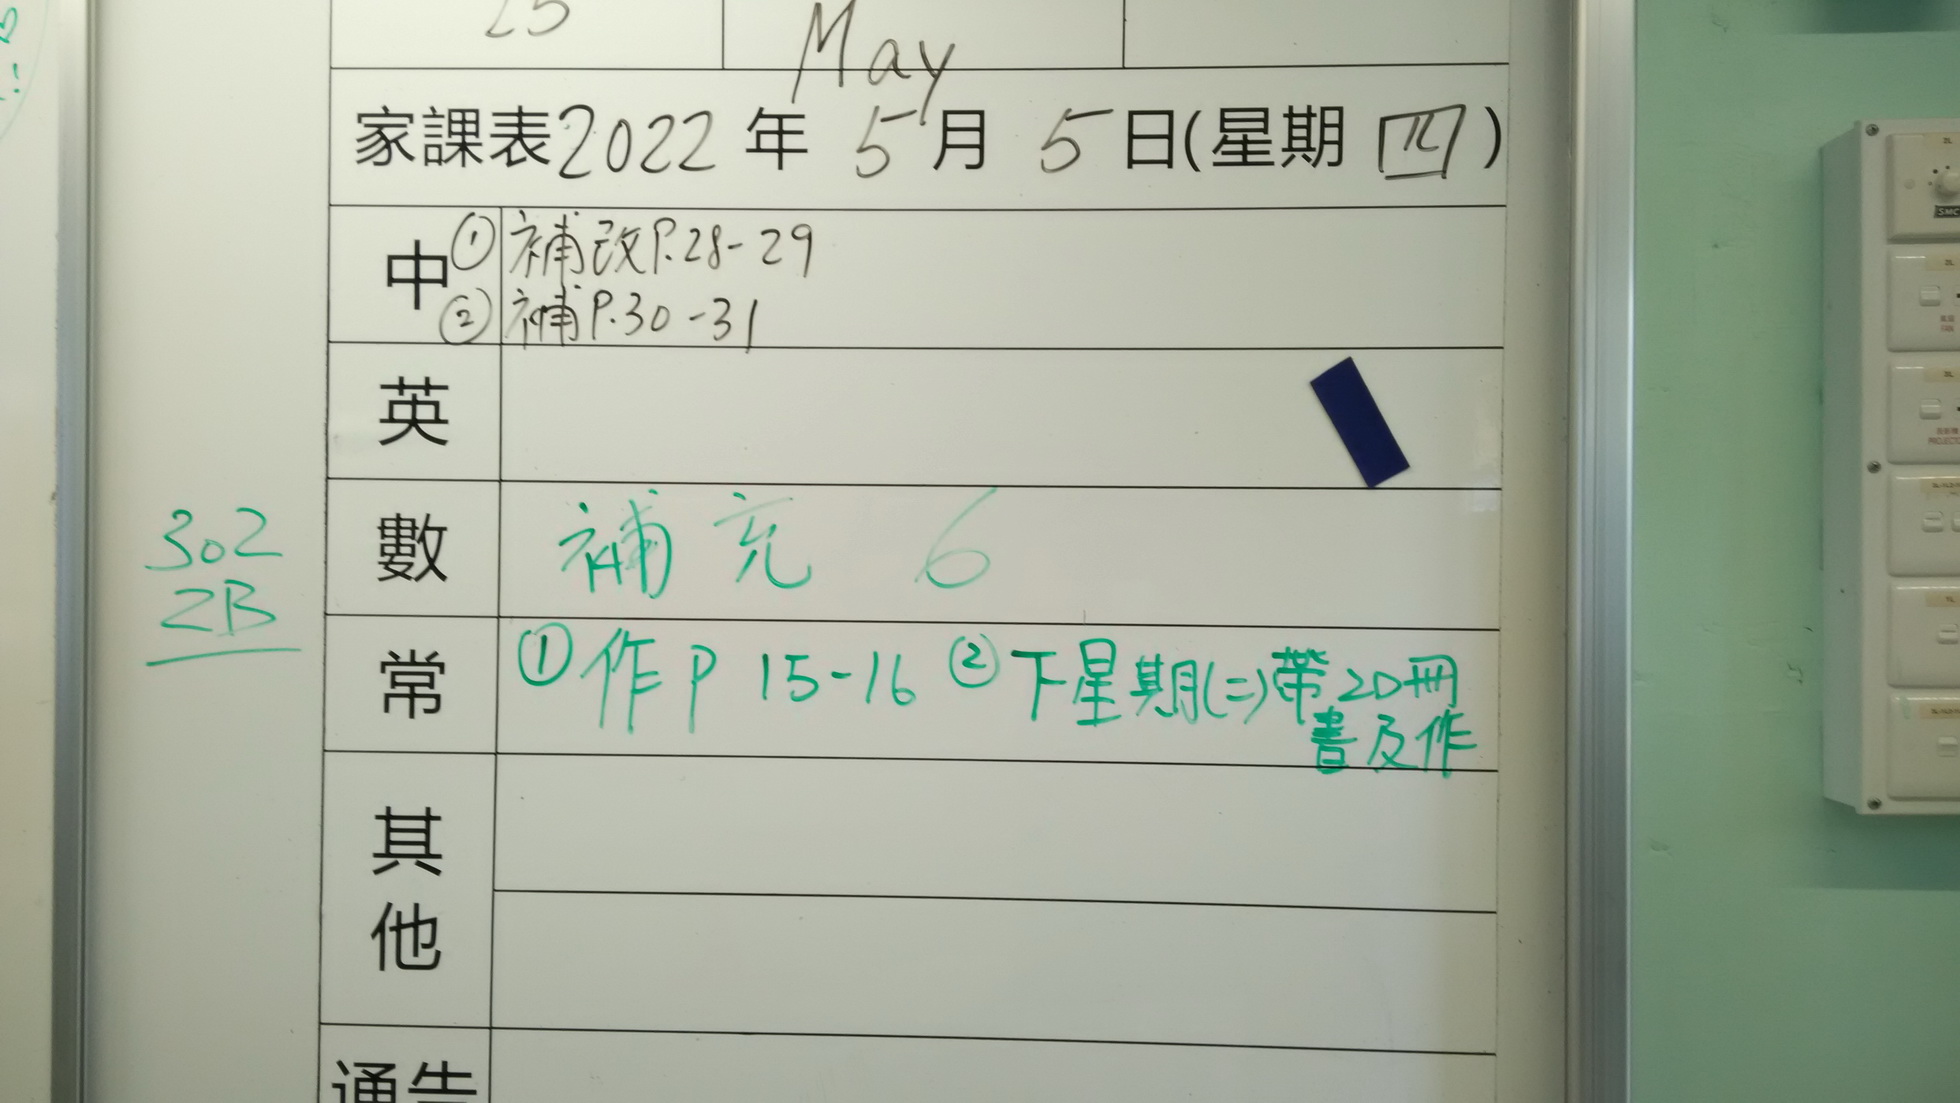 25
May
家課表2022年5月5日(星期四)
中 ①補改P.28-29
②補P.30-31
英
302
2B
數 補充 6
常 ①作P 15-16 ②下星期(二)帶2D冊
書及作
其他
通告
SMC
FAN